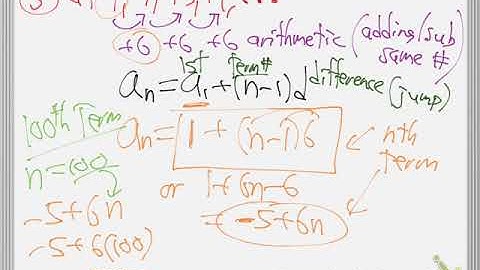 +6 +6 +6 arithmetic (adding/sub
same #
1st Term#
an = a1 + (n-1)d difference (jump)
100th Term
an = 1 + (n-1)6
nth
term
n=100
or 1+6n-6
-5+6n
= -5+6n
-5+6(100)